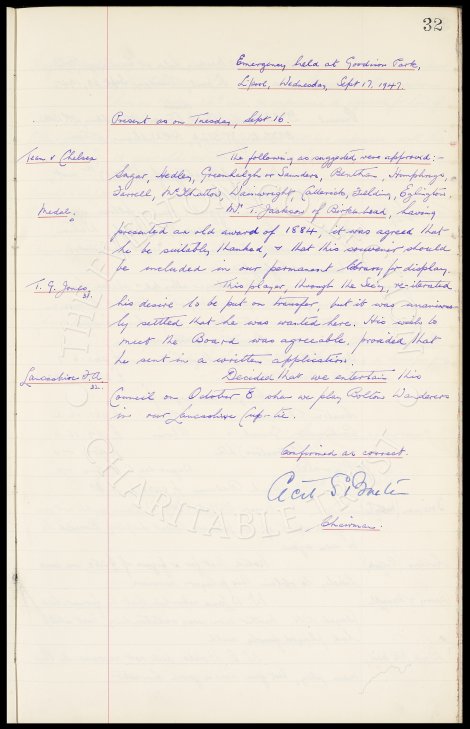 32
Emergency held at Goodison Park,
L'pool, Wednesday, Sept 17, 1947.
Present as on Tuesday, Sept 16.
Team v Chelsea
The following as suggested were approved:-
Sagar, Hedley, Greenhalgh or Saunders, Bentham, Humphreys,
Farrell, McIlhatton, Wainwright, Catterick, Fielding, Eglington.
Medal.
Mr. T. Jackson of Birkenhead, having
presented an old award of 1884, it was agreed that
he be suitably thanked, & that this souvenir should
be included in our permanent library for display.
T. G. Jones
This player, through the Sec'y, re-iterated
his desire to be put on transfer, but it was unanimous-
ly settled that he was wanted here. His wish to
meet the Board was agreeable, provided that
he sent in a written application.
Lancashire F.A.
Decided that we entertain this
Council on October 8 when we play Bolton Wanderers
in our Lancashire Cup-tie.
Confirmed as correct.
Chairman.
THE EVERTON
CHARITABLE TRUST